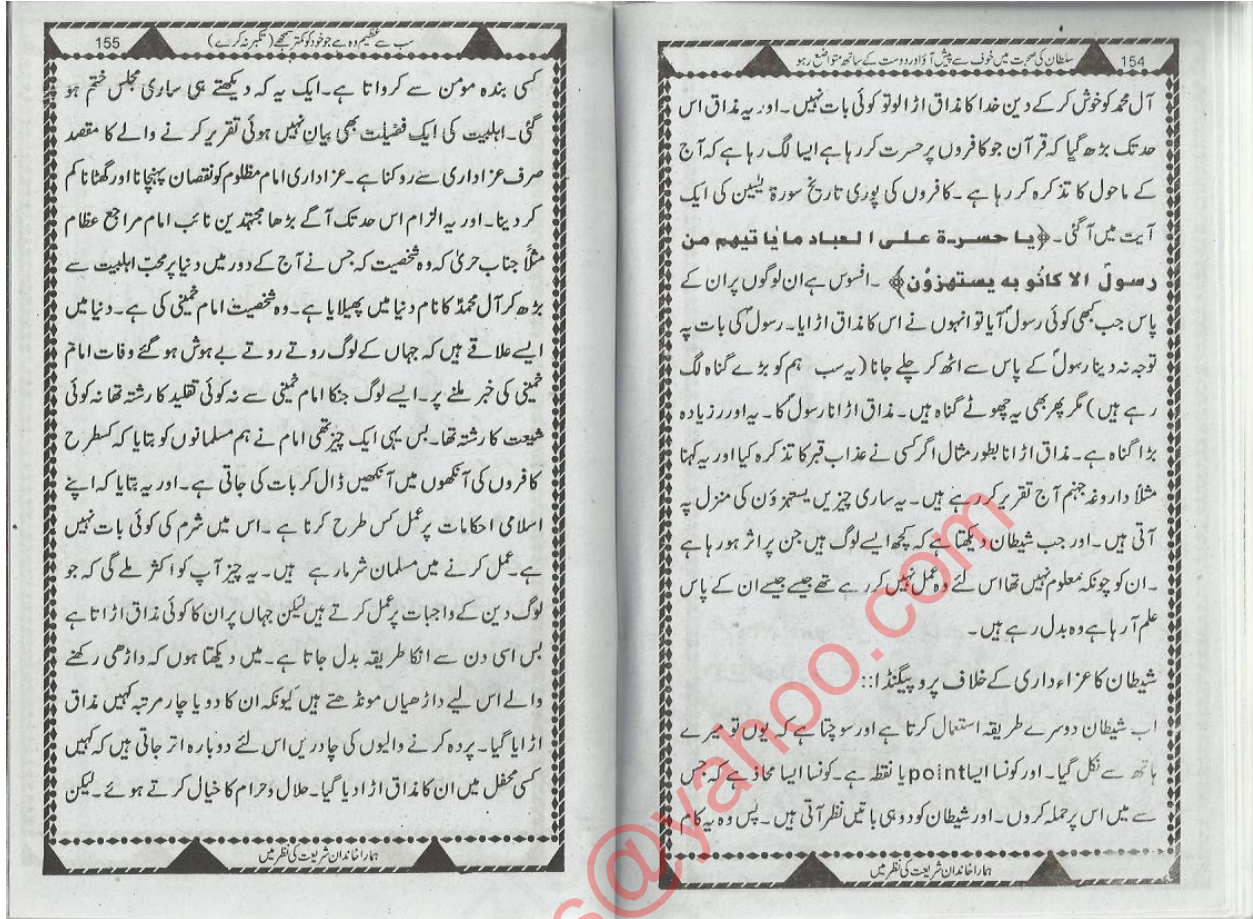 سلطان کی صحبت میں خوف سے پیش آؤ اور دوست کے ساتھ متواضع رہو
154
آل محمد کو خوش کر کے دین خدا کا مذاق اڑا لو تو کوئی بات نہیں۔ اور یہ مذاق اس
حد تک بڑھ گیا کہ قرآن جو کافروں پر حسرت کر رہا ہے ایسا لگ رہا ہے کہ آج
کے ماحول کا تذکرہ کر رہا ہے۔ کافروں کی پوری تاریخ سورۃ یٰسین کی ایک
آیت میں آگئی۔ ﴿یا حسرۃ علی العباد مایٔا تیهم من
رسولٍ الا کانُو به یستهزؤن﴾ ۔ افسوس ہے ان لوگوں پر ان کے
پاس جب کبھی کوئی رسولؐ آیا تو انہوں نے اس کا مذاق اڑایا۔ رسولؐ کی بات پہ
توجہ نہ دینا رسولؐ کے پاس سے اٹھ کر چلے جانا (یہ سب ہم کو بڑے گناہ لگ
رہے ہیں) مگر پھر بھی یہ چھوٹے گناہ ہیں۔ مذاق اڑانا رسولؐ کا۔ یہ اور زیادہ
بڑا گناہ ہے۔ مذاق اڑانا بطور مثال اگر کسی نے عذاب قبر کا تذکرہ کیا اور یہ کہنا
مثلاً داروغہ جہنم آج تقریر کر رہے ہیں۔ یہ ساری چیزیں یستہزؤن کی منزل پہ
آتی ہیں۔ اور جب شیطان دیکھتا ہے کہ کچھ ایسے لوگ ہیں جن پر اثر ہو رہا ہے
۔ ان کو چونکہ معلوم نہیں تھا اس لئے وہ عمل نہیں کر رہے تھے جیسے جیسے ان کے پاس
علم آ رہا ہے وہ بدل رہے ہیں۔
شیطان کا عزاء داری کے خلاف پروپیگنڈا::
اب شیطان دوسرے طریقہ استعمال کرتا ہے اور سوچتا ہے کہ یوں تو میرے
ہاتھ سے نکل گیا۔ اور کونسا ایسا point یا نقطہ ہے۔ کونسا ایسا محاذ ہے کہ جس
سے میں اس پر حملہ کروں۔ اور شیطان کو دو ہی باتیں نظر آتی ہیں۔ پس وہ یہ کام
ہمارا خاندان شریعت کی نظر میں
سب سے عظیم وہ ہے جو خود کو کمتر سمجھے (تکبر نہ کرے)
155
کسی بندہ مومن سے کرواتا ہے۔ ایک یہ کہ دیکھتے ہی ساری مجلس ختم ہو
گئی۔ اہلبیت کی ایک فضیلت بھی بیان نہیں ہوئی تقریر کرنے والے کا مقصد
صرف عزاداری سے روکنا ہے۔ عزاداری امام مظلوم کو نقصان پہنچانا اور گھٹانا کم
کر دینا۔ اور یہ الزام اس حد تک آگے بڑھا مجتہدین نائب امام مراجع عظام
مثلاً جناب حریٰ کہ وہ شخصیت کہ جس نے آج کے دور میں دنیا پر محبّ اہلبیت سے
بڑھ کر آل محمدؐ کا نام دنیا میں پھیلایا ہے۔ وہ شخصیت امام خمینی کی ہے۔ دنیا میں
ایسے علاقے ہیں کہ جہاں کے لوگ روتے روتے بے ہوش ہو گئے وفات امام
خمینی کی خبر ملنے پر۔ ایسے لوگ جنکا امام خمینی سے نہ کوئی تقلید کا رشتہ تھا نہ کوئی
شیعت کا رشتہ تھا۔ بس یہی ایک چیز تھی امام نے ہم مسلمانوں کو بتایا کہ کسطرح
کافروں کی آنکھوں میں آنکھیں ڈال کر بات کی جاتی ہے۔ اور یہ بتایا کہ اپنے
اسلامی احکامات پر عمل کس طرح کرنا ہے۔ اس میں شرم کی کوئی بات نہیں
ہے۔ عمل کرنے میں مسلمان شرما رہے ہیں۔ یہ چیز آپ کو اکثر ملے گی کہ جو
لوگ دین کے واجبات پر عمل کرتے ہیں لیکن جہاں پر ان کا کوئی مذاق اڑاتا ہے
بس اسی دن سے انکا طریقہ بدل جاتا ہے۔ میں دیکھتا ہوں کہ داڑھی رکھنے
والے اس لیے داڑھیاں مونڈھتے ہیں کیونکہ ان کا دو یا چار مرتبہ کہیں مذاق
اڑایا گیا۔ پردہ کرنے والیوں کی چادریں اس لئے دوبارہ اتر جاتی ہیں کہ کہیں
کسی محفل میں ان کا مذاق اڑا دیا گیا۔ حلال و حرام کا خیال کرتے ہوئے۔ لیکن
ہمارا خاندان شریعت کی نظر میں
s@yahoo.com